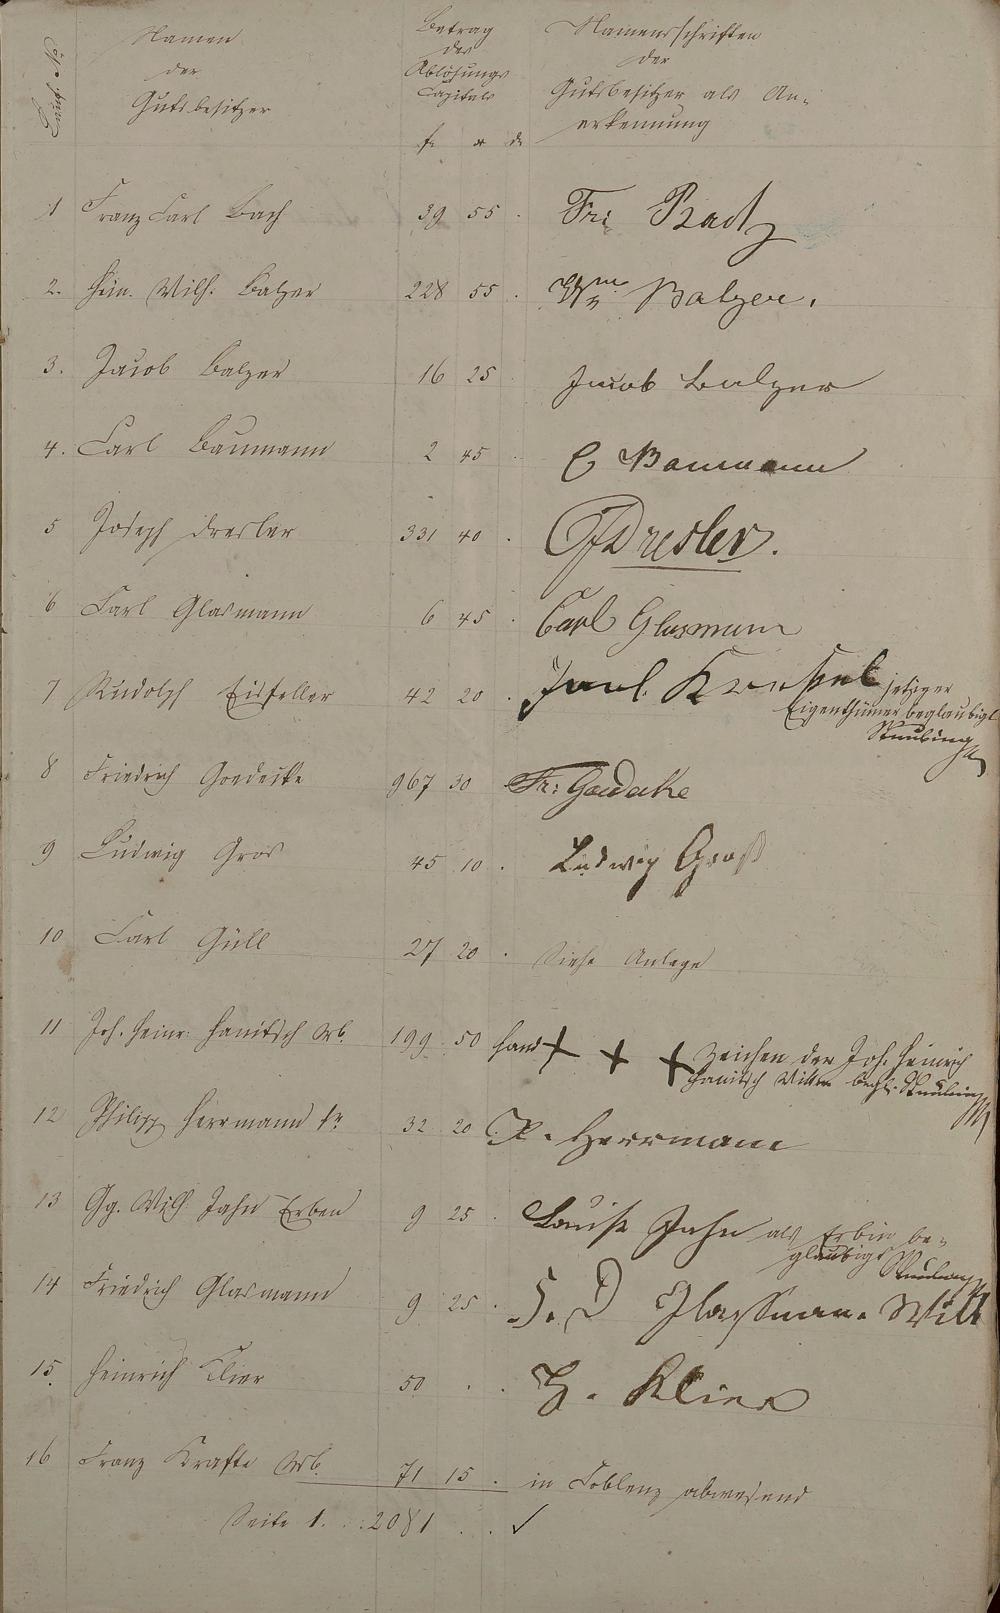 Namen
der
Gutsbesitzer
Betrag
des
Ablösungs
Capitals
Namensschriften
der
Gutsbesitzer als An-
erkennung
1 Franz Carl Bach 39 55 . Fr: Bach
2. Hein. Wilh. Balzer 228 55 . Wm Balzer.
3. Jacob Balzer 16 25 Jacob Balzer
4. Carl Baumann 2 45 C Baumann
5 Joseph Dresler 331 40 . Dresler.
6 Carl Glasmann 6 45 . Carl Glasmann
7 Rudolph Eisfeller 42 20 . jetziger
Eigenthümer beglaubigt
Stuubing
8 Friedrich Goedecke 967 30 Fr: Goedecke
9 Ludwig Gros 45 10 . Ludwig Groß
10 Carl Güll 27 20 . Siehe Anlage
11 Joh. Heinr. Hanitsch Wb. 199 50 Hand + + + Zeichen der Joh. Heinrich
Hanitsch Wittwe begl.
12 Philipp Herrmann sr 32 20 P. Herrmann
13 Gg. Wilh Jahn Erben 9 25 . Louise Jahn als Erbin be-
glaubigt
14 Friedrich Glasmann 9 25 . F. D Glassmann Witt
15. Heinrich Klier 50 . . H. Klier
16 Franz Krafts Wb. 71 15 . in Coblenz abwesend
Seite 1. . . 2081 . . ✓